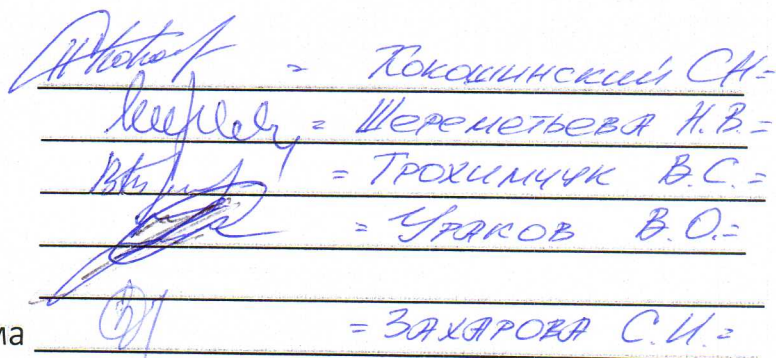 = Кокошинский С.Н =
= Шереметьева Н.В. =
= Трохимчук В.С. =
= Ураков В.О. =
ма = Захарова С.И. =